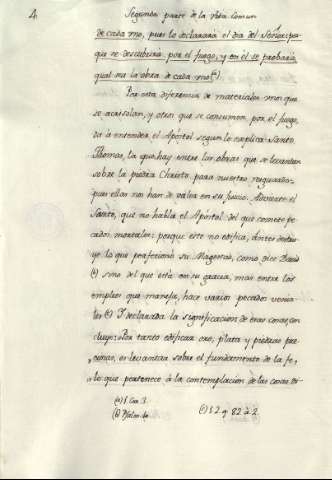 4
Segunda parte de la obra comun
de cada uno, pues lo declarará el dia del Señor: por
que se descubrirá por el fuego, y en el se probaria
qual sea la obra de cada uno (a).
Por esta diferencia de materiales, unos que
se acrisolan, y otros que se consumen por el fuego,
dá à entender el Apóstol segun lo explica Santo
Thomas, la que hay entre las obras que se levantan
sobre la piedra Christo, para nuestro resguardo:
pues ellas nos han de valer en su juicio. Advierte el
Santo, que no habla el Apóstol del que comete pe-
cados mortales: porque este no edifica, antes destru-
ye lo que perfecionó su Magestad, como dice David
(b) sino del que está en su gracia, mas entre los
empleos que maneja, hace varios pecados venia-
les (c) Y declarada la significacion de esas cosas, con-
cluye: Por tanto edificar oro, plata y piedras pre-
ciosas, es levantar sobre el fundamento de la fe,
lo que pertenece à la contemplacion de las cosas di-
(a) 1. Cor. 3.
(b) Psalm. 10.
(c) 1. 2. q. 82. a. 2.